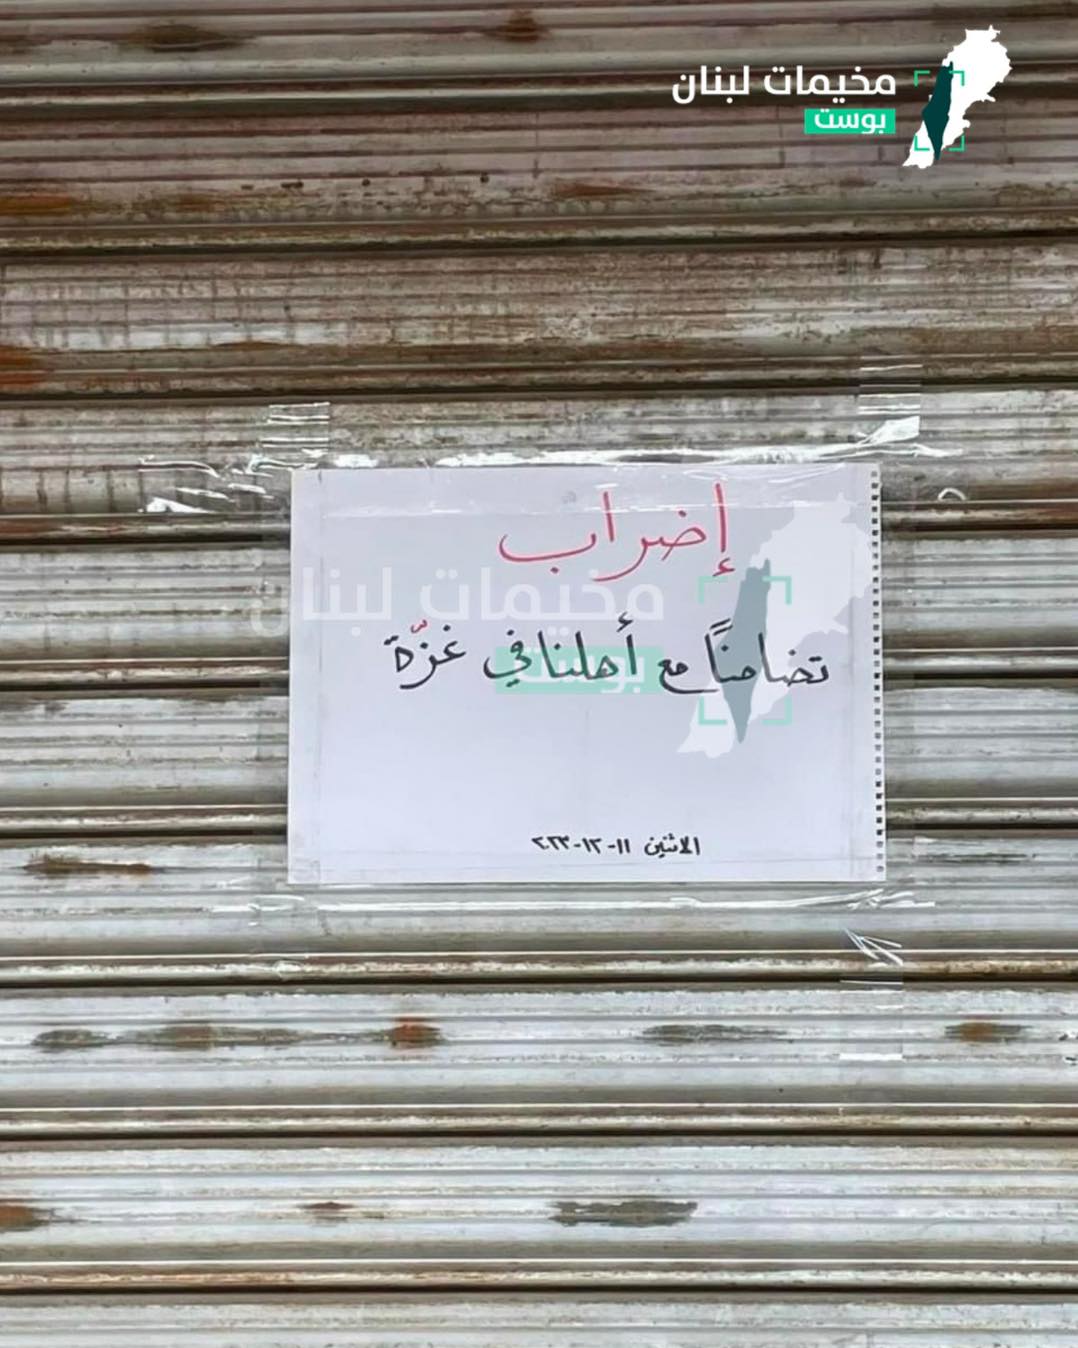 مخيمات لبنان
بوست
إضراب
تضامناً مع أهلنا في غزّة
مخيمات لبنان
بوست
الاثنين ١١-١٢-٢٠٢٣